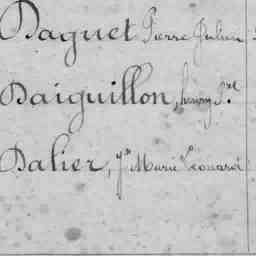 Daguet Pierre Julien
Daiguillon, henry
Dalier, Jn Marie Léonard